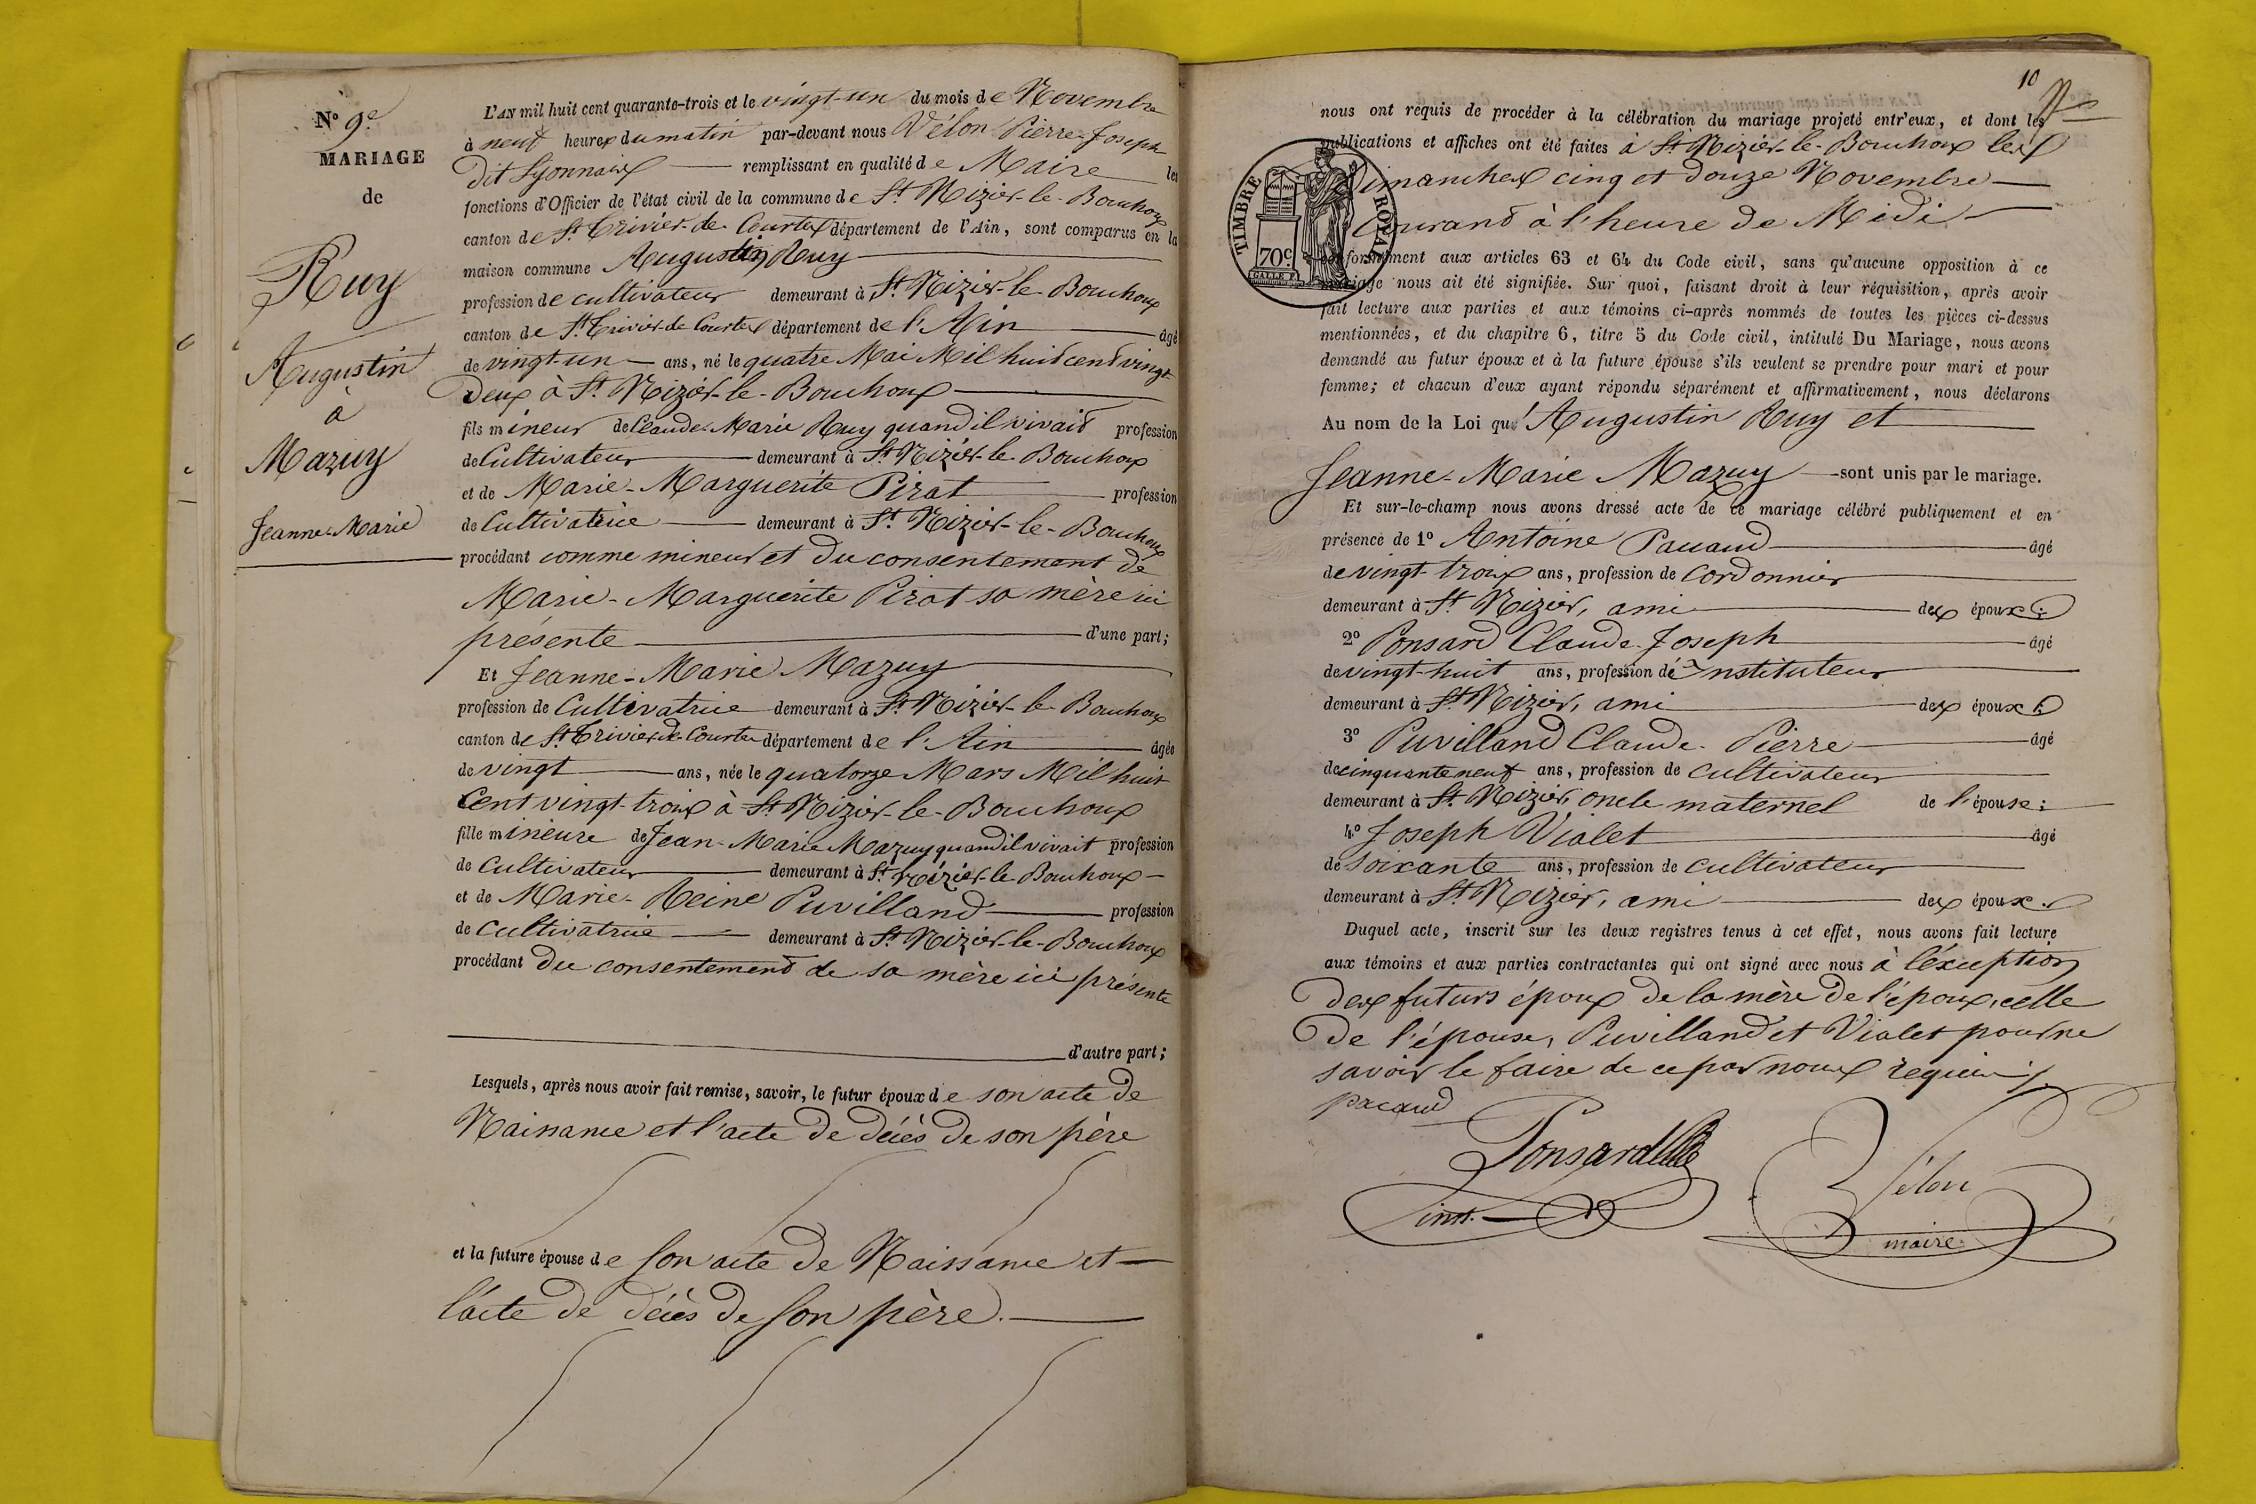 N° 9e
MARIAGE
de
Ruy
Augustin
à
Mazuy
Jeanne-Marie
L'AN mil huit cent quarante-trois et le vingt-un du mois de Novembre
à neuf heures du matin par-devant nous Vélon Pierre-Joseph
dit Lyonnais remplissant en qualité de Maire les
fonctions d'Officier de l'état civil de la commune de St Nizier-le-Bouchoux
canton de St Trivier-de-Courtes département de l'Ain, sont comparus en la
maison commune Augustin Ruy
profession de cultivateur demeurant à St Nizier-le-Bouchoux
canton de St Trivier de Courtes département de l'Ain âgé
de vingt-un ans, né le quatre Mai Mil huit cent vingt-
deux à St Nizier-le-Bouchoux
fils mineur de Claude-Marie Ruy quand il vivait profession
de Cultivateur demeurant à St Nizier-le-Bouchoux
et de Marie-Marguerite Pirat profession
de Cultivatrice demeurant à St Nizier-le-Bouchoux
procédant comme mineur et du consentement de
Marie-Marguerite Pirat sa mère ici
présente d'une part;
Et Jeanne-Marie Mazuy
profession de Cultivatrice demeurant à St Nizier-le-Bouchoux
canton de St Trivier-de-Courtes département de l'Ain âgée
de vingt ans, née le quatorze Mars Mil huit
Cent vingt-trois à St Nizier-le-Bouchoux
fille mineure de Jean-Marie Mazuy quand il vivait profession
de Cultivateur demeurant à St Nizier-le-Bouchoux
et de Marie-Reine Puvilland profession
de Cultivatrice demeurant à St Nizier-le-Bouchoux
procédant du consentement de sa mère ici présente
d'autre part;
Lesquels, après nous avoir fait remise, savoir, le futur époux de son acte de
Naissance et l'acte de décès de son père
et la future épouse de son acte de Naissance et
l'acte de décès de son père.
10
nous ont requis de procéder à la célébration du mariage projeté entr'eux, et dont les
publications et affiches ont été faites à St Nizier-le-Bouchoux les
dimanches cinq et douze Novembre
Courant à l'heure de Midi
TIMBRE ROYAL
70c
GALLE F.
conformément aux articles 63 et 64 du Code civil, sans qu'aucune opposition à ce
mariage nous ait été signifiée. Sur quoi, faisant droit à leur réquisition, après avoir
fait lecture aux parties et aux témoins ci-après nommés de toutes les pièces ci-dessus
mentionnées, et du chapitre 6, titre 5 du Code civil, intitulé Du Mariage, nous avons
demandé au futur époux et à la future épouse s'ils veulent se prendre pour mari et pour
femme; et chacun d'eux ayant répondu séparément et affirmativement, nous déclarons
Au nom de la Loi qu'Augustin Ruy et
Jeanne-Marie Mazuy sont unis par le mariage.
Et sur-le-champ nous avons dressé acte de ce mariage célébré publiquement et en
présence de 1° Antoine Pacaud âgé
de vingt-trois ans, profession de cordonnier
demeurant à St Nizier, ami des époux;
2° Ponsard Claude-Joseph âgé
de vingt-huit ans, profession d'Instituteur
demeurant à St Nizier, ami des époux;
3° Puvilland Claude-Pierre âgé
de cinquante neuf ans, profession de cultivateur
demeurant à St Nizier, oncle maternel de l'épouse;
4° Joseph Vialet âgé
de soixante ans, profession de cultivateur
demeurant à St Nizier, ami des époux.
Duquel acte, inscrit sur les deux registres tenus à cet effet, nous avons fait lecture
aux témoins et aux parties contractantes qui ont signé avec nous à l'exception
des futurs époux de la mère de l'époux, celle
de l'épouse, Puvilland et Vialet pour ne
savoir le faire de ce par nous requis
pacaud
Ponsard
inst.
Vélon
maire